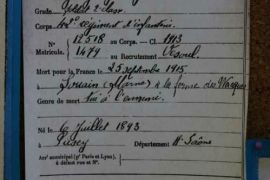 Grade 2e classe
Corps régiment d'infanterie
N° 12518 au Corps. — Cl. 1913
Matricule. 1479 au Recrutement Vesoul
Mort pour la France le 25 septembre 1915
à Souain (Marne) à la ferme des Wacques
Genre de mort tué à l'ennemi
Né le 6 Juillet 1893
à Pusey Département Hte Saône
Arrt municipal (pr Paris et Lyon)
à défaut rue et N°